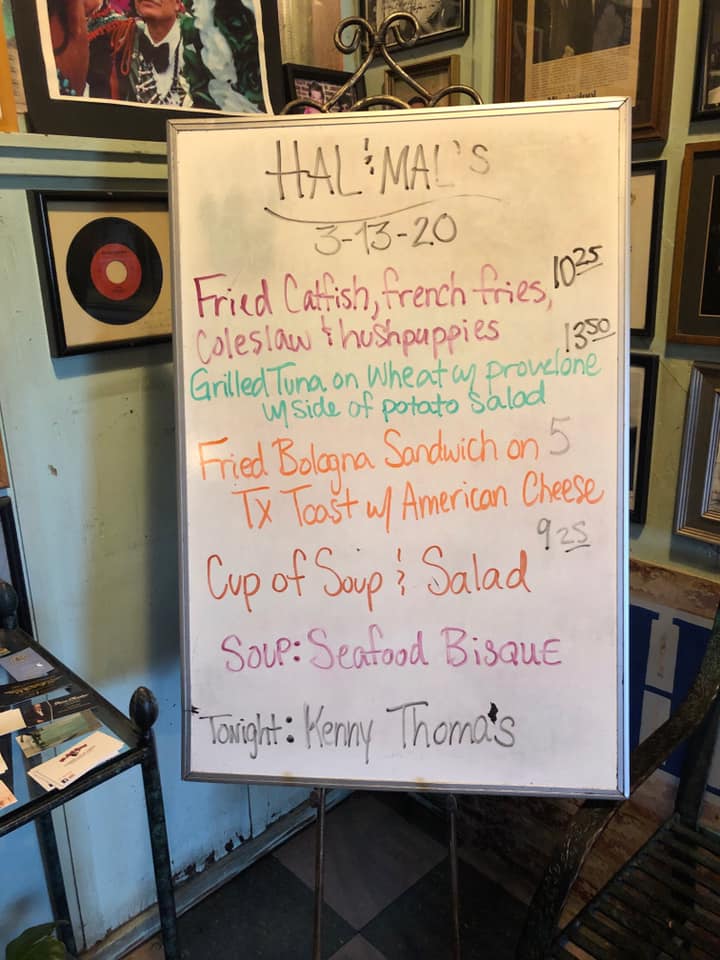 HAL & MAL'S
3-13-20
Fried Catfish, french fries, 10 25
Coleslaw & hushpuppies
Grilled Tuna on Wheat w/ provelone 13 50
w/ side of potato Salad
Fried Bologna Sandwich on 5
Tx Toast w/ American Cheese
Cup of Soup & Salad 9 25
Soup: Seafood Bisque
Tonight: Kenny Thoma's